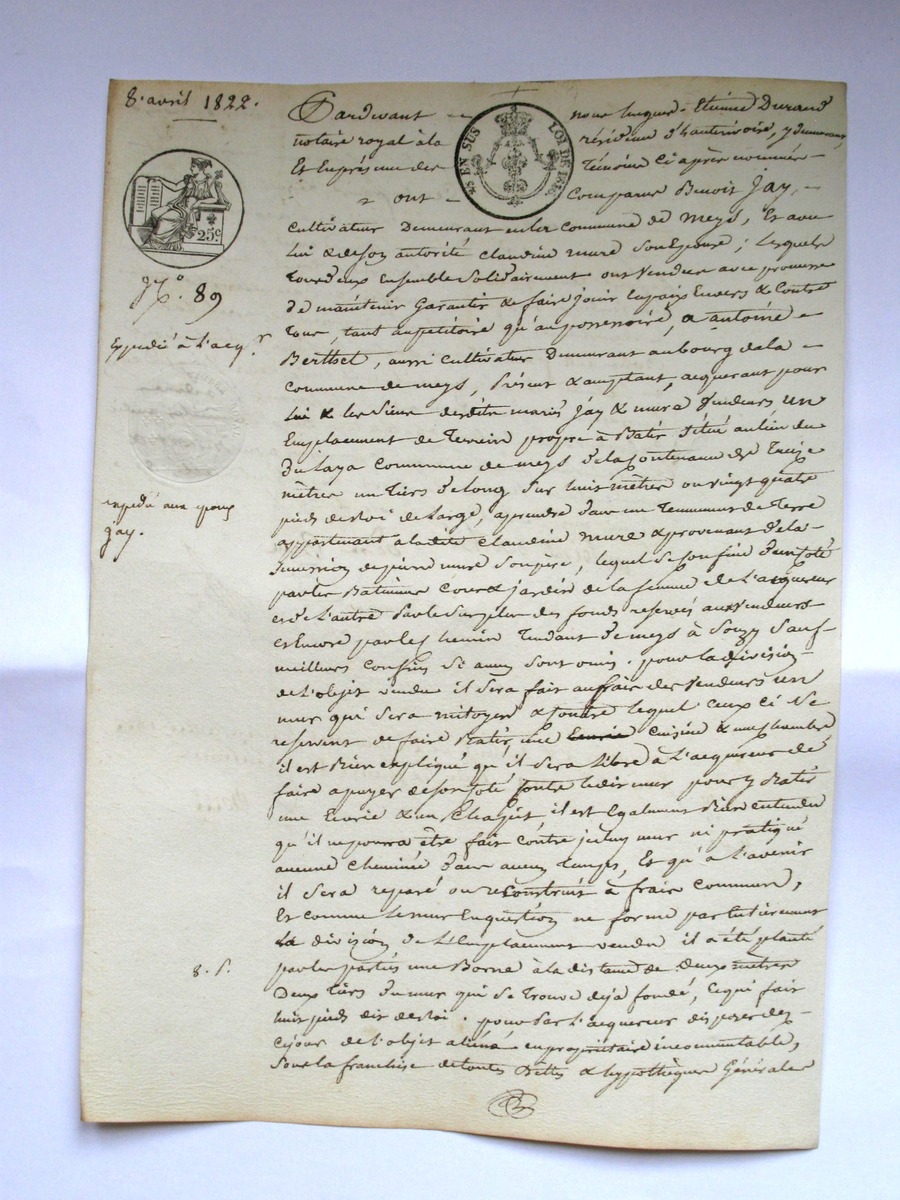 8. avril 1822.
Pardevant nous Jacques Etienne Durand
notaire royal à la résidence d'hauterivoire, y demeurant,
Et En présence des témoins ci après nommés
ont Comparu Benoit Jay,
EN SUS LOI DE 1816
25c
Cultivateur Demeurant en la Commune de meys, Et avec
lui & de son autorité claudine mure son Epouse; lesquels
tous deux Ensemble solidairement ont vendu avec promesse
de maintenir garantir & faire jouir en paix Envers & Contre
tous, tant au petitoire qu'au possessoire, a antoine
Berthet, aussi Cultivateur Demeurant au bourg de la
Commune de meys, présent & acceptant, acquerant pour
lui & les siens desdits mariés Jay & mure Vendeurs un
Emplacement de terrein propre à Batir situé au lieu du
commune de meys de la Contenance de treize
mètres un tiers de long sur huit mètres ou vingt quatre
pieds de roi de large, a prendre dans un tennement de terre
appartenant à ladite claudine mure & provenant de la
succession de pierre mure son père, lequel se confine d'un coté
par les Batimens cour & jardin de la femme de l'acquereur
et de l'autre par le surplus des fonds reservés aux vendeurs
et Encore par le chemin tendant de meys à Souzy sauf
meilleurs confins si aucuns sont omis. pour la division
de l'objet vendu il sera fait aux frais des vendeurs un
mur qui sera mitoyen & contre lequel ceux ci se
reservent de faire Batir une Ecurie cuisine & une chambre
il est Bien expliqué qu'il sera libre à l'acquereur de
faire apuyer de son coté contre ledit mur pour y Batir
une Ecurie & un Chapit il est Egalement Bien entendu
qu'il ne pourra être fait contre icelui mur ni pratiqué
aucune cheminée dans aucun temps, Et qu'à l'avenir
il sera reparé ou reconstruit à frais communs,
Et comme le mur En question ne forme pas Entièrement
La division de l'Emplacement vendu il a été planté
par les parties une Borne à la distance de deux mètres
Deux tiers du mur qui se trouve déja fondé, ce qui fait
huit pieds dit de roi. pour par l'acquereur disposer dez
ce jour de l'objet aliéné en propriétaire incommutable,
sous la franchise de toutes Dettes & hypothèques Générale
No. 89
Expedié à l'acqr
expedié aux époux
Jay.
8. S.